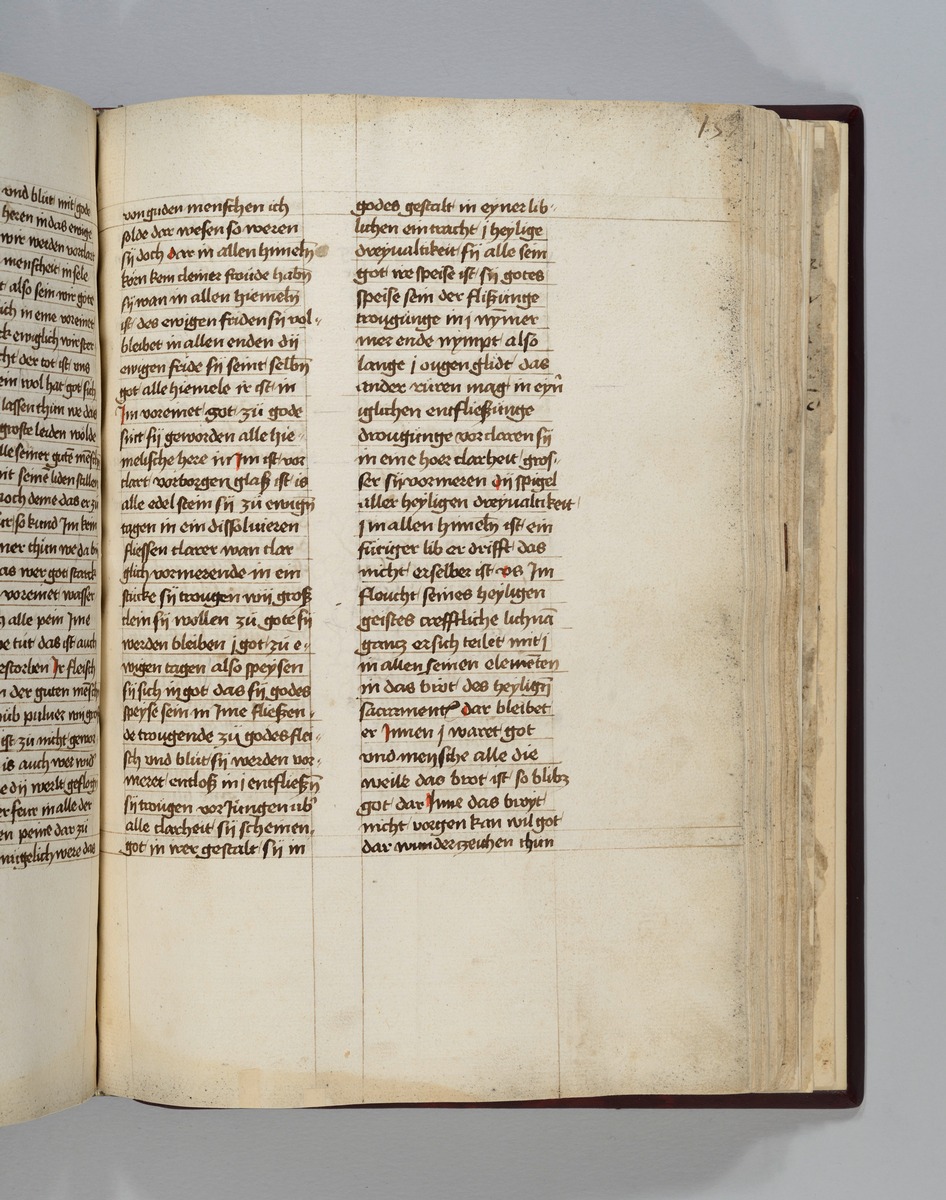 vnd blut mit gode
heren in das ewige
wir werden vorclart
menscheit in sele
also sein wir gote
ich in eine voreinet
ewiglich
der tot ist vns
wol hat got sich
lassen thun we das
groste leiden wolde
alle seiner gute mēsch
mit seinē liden stillen
noch deme das er zu
so kund Jm kein
thun we da
as wer got starck
voreinet wasser
alle pein Jme
tut das ist auch
erstorben Jr fleisch
der guten mēsch
puluer von
ist zu nicht
is auch wer
dij werlt
er feur in alle der
peine dar zů
were das
15
von guden menschen ich
solde dar wesen so weren
sij doch dar in allen himeln̄
korn kein cleiner froude habn̄
sij wan in allen hiemeln̄
ist des ewigen friden sij vol-
bleibet in allen enden dij
ewigen fride sij seint selbn̄
got alle hiemele ir ist in
Jm voreinet got zů gode
sint sij geworden alle hie-
melische here in Jm ist vor
clart vorborgen glaß ist is
alle edel stein sij zů ewign̄
tagen in ein dissoluieren
fliessen clarer wan clar
glich vormerende in ein
stucke sij trougen wij groß
clein sij wollen zů gote sij
werden bleiben j got zů e-
wigen tagen also speysen
sij sich in got das sij godes
speyse sein in Jme fließen-
de trougende zů godes flei-
sch vnd blůt sij werden vor-
meret entloß in j entfließn̄
sij trougen vor Jungen ub'
alle clarheit sij scheinen
got in wer gestalt sij in
godes gestalt in eyner lib-
lichen eintracht j heylige
dreyualtikeit sij alle sein
got we speise ist sij gotes
speise sein der flißunge
trougunge in j nȳmer
mer ende nympt also
lange j ougen glidt das
ander ruren mag in eyn̄
iglichen entfließunge
drougunge vorclaren sij
in eine hoer clarheit gros-
ser sij vormeren dij spigel
aller heyligen dreyualtikeit
j in allen himeln ist ein
furiger lib er drifft das
nicht er selber ist das Jm
floucht seines heyligen
geistes crefftliche lichnā
ganz er sich teilet mit j
in allen seinen elemēten
in das brot des heylign̄
sacrament dar bleibet
er Jnnen j waret got
vnd mensche alle die
weile das brot ist so blibz
got dar Jnne das broyt
nicht vorgen kan wil got
dar wunderzeichen thun